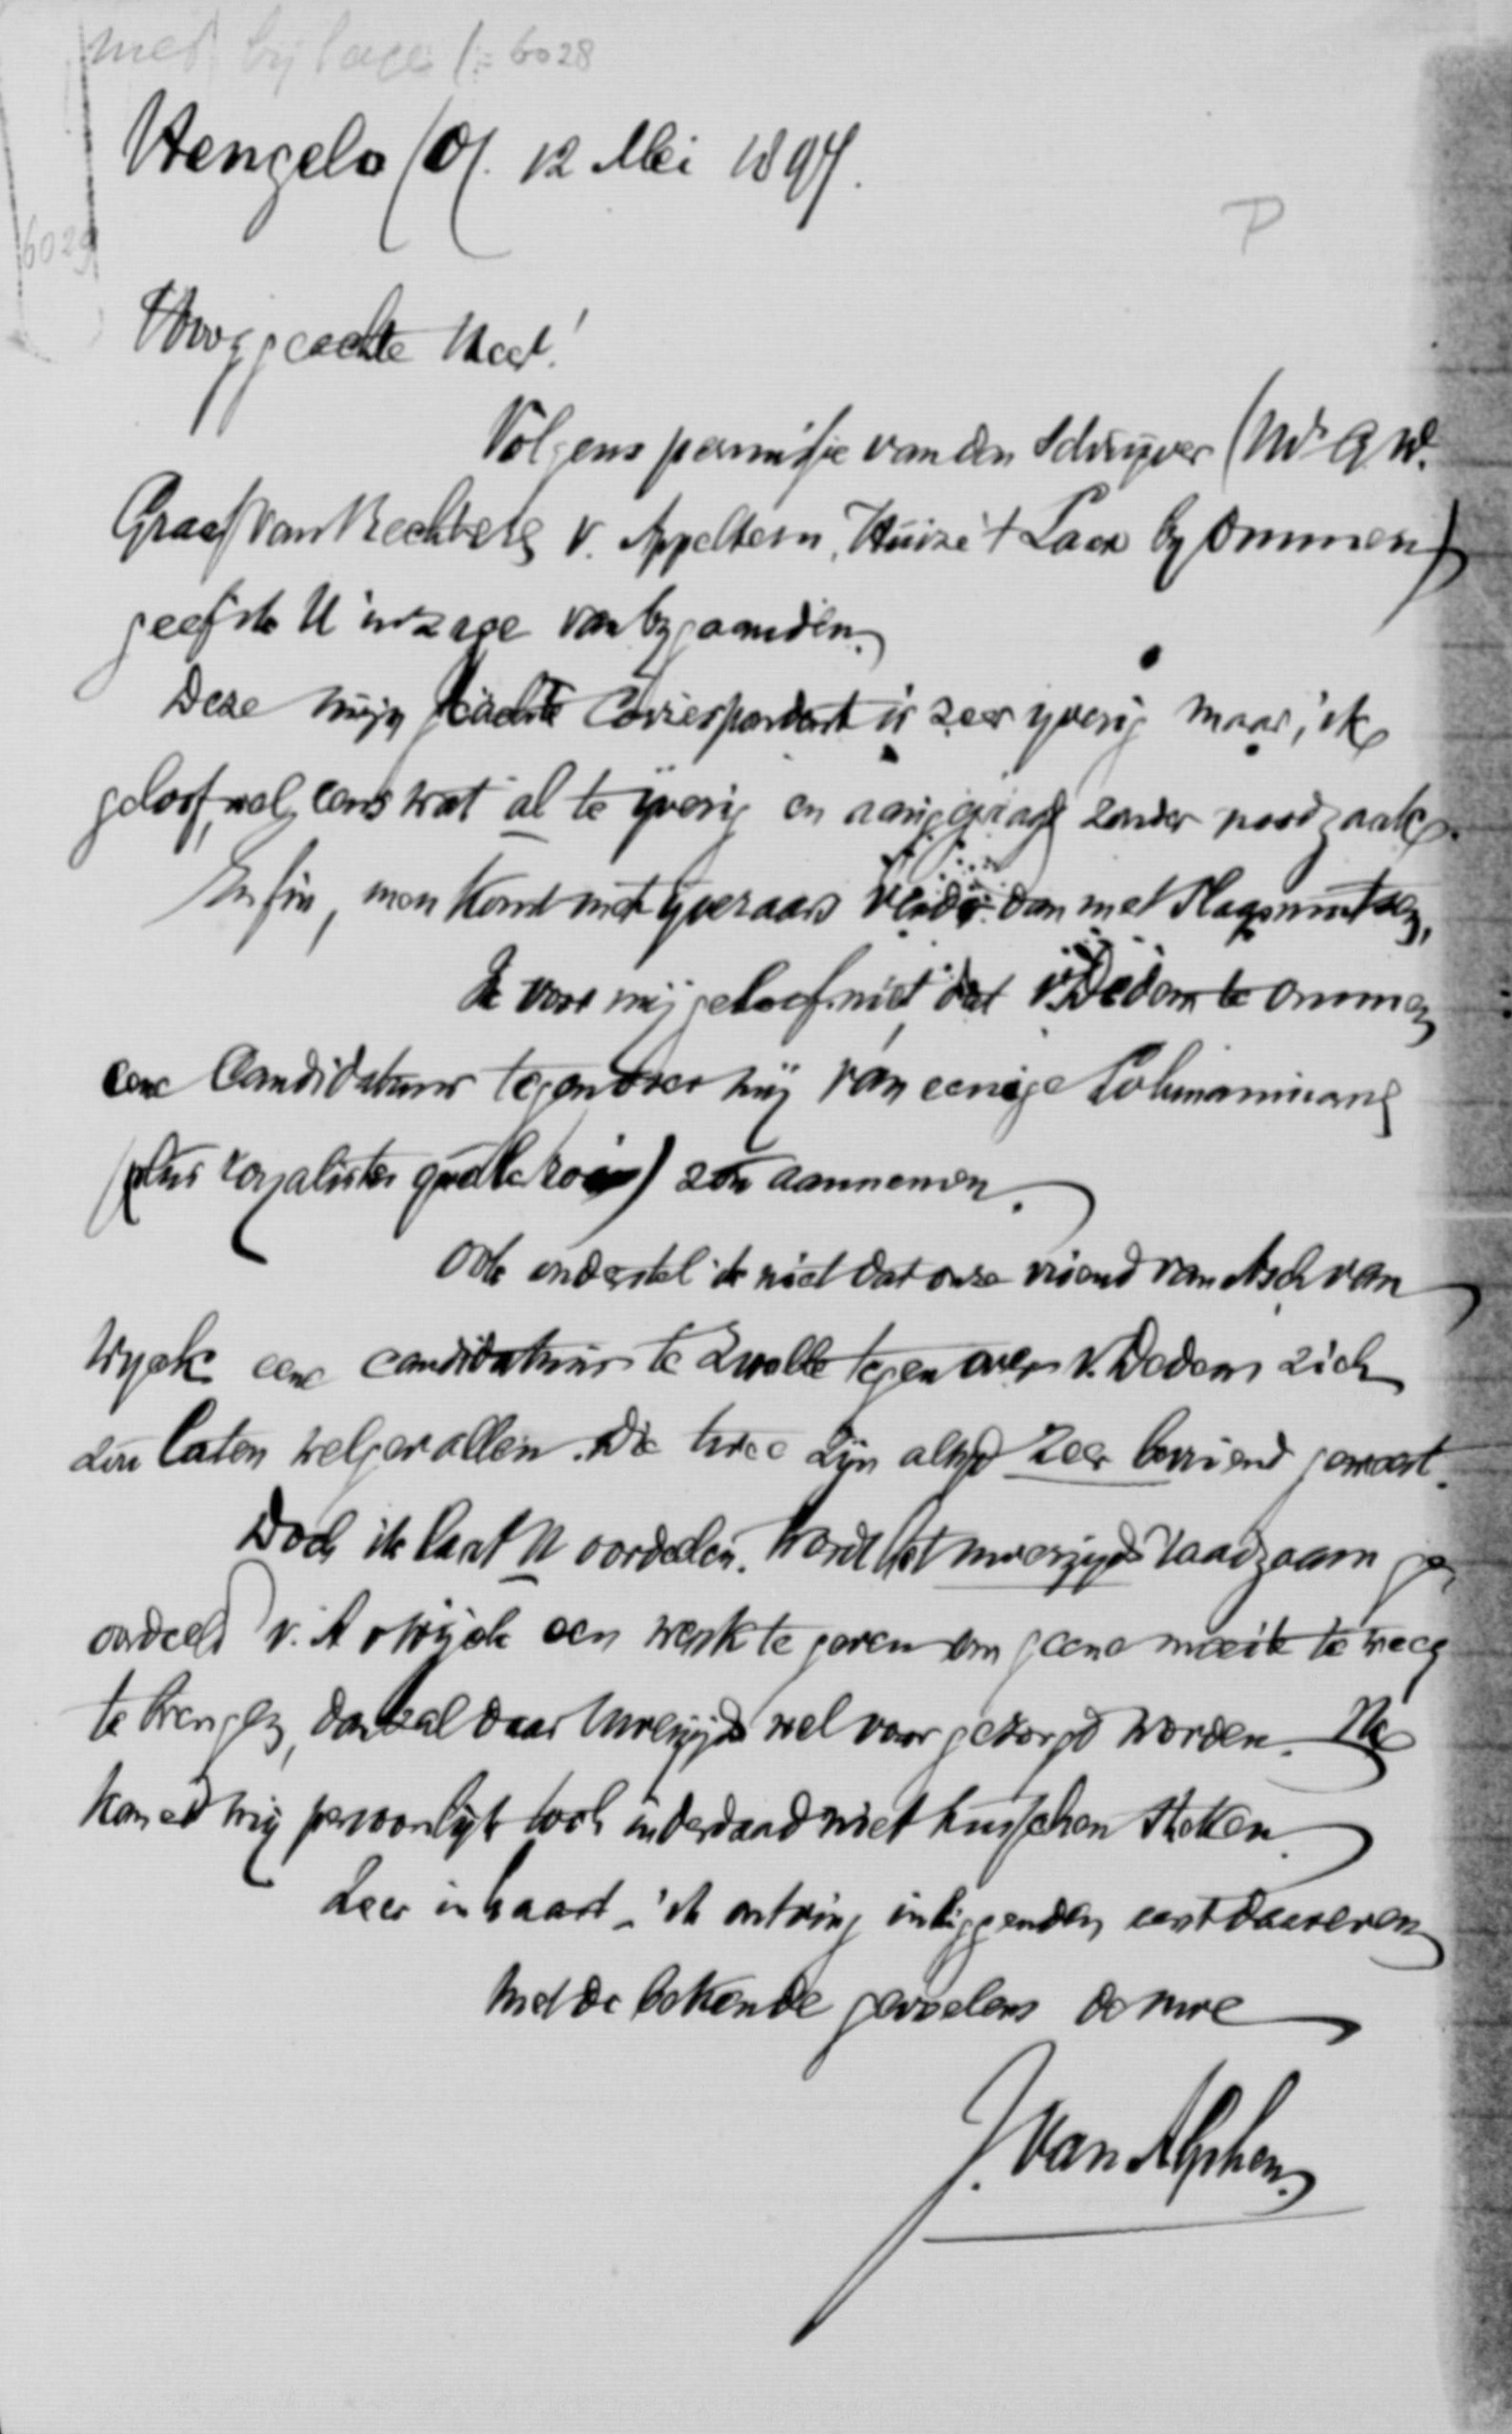 met bijlage /: 6028
Hengelo (O). 12 Mei 1897.
6029
P
Hooggeachte Heer!
Volgens permissie van den Schrijver (Mr A. W.
Graaf van Rechteren v. Appeltern, Huize 't Laer by Ommen)
geef ik U inzage van bygaanden.
Deze mijn geachte Correspondent is zeer yverig maar, ik
geloof, wel eens wat al te yverig en zonder noodzaak.
Enfin, men komt met yveraars verder dan met slaapmutsen.
Ik voor mij geloof niet, dat v. Dedem te Ommen
eene Candidatuur tegenover mij van eenige Lohmanniaans
(plus royalistes que le roi) zou aannemen.
Ook onderstel ik niet dat onze vriend van Asch van
Wyck eene candidatuur te Zwolle tegenover v. Dedem zich
zou laten welgevallen. Die twee zijn altyd zeer bevriend geweest.
Doch ik laat U oordelen. Wordt het Uwerzyds raadzaam ge
oordeeld v. A v Wijck een wenk te geven om geene moeite te weeg
te brengen, dan zal daar Uwerzijds wel voor gezorgd worden. Ik
kan er mij persoonlijk toch inderdaad niet tusschen steken.
Zeer in haast, ik ontving inliggenden eerst daareven
met de bekende gevoelens de uwe
J. van Alphen.